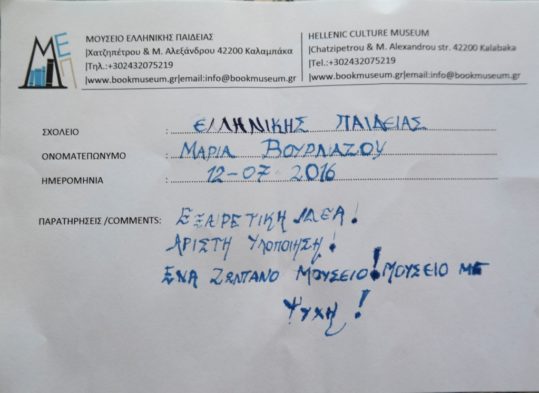 ΜΕ
Π
ΜΟΥΣΕΙΟ ΕΛΛΗΝΙΚΗΣ ΠΑΙΔΕΙΑΣ
|Χατζηπέτρου & Μ. Αλεξάνδρου 42200 Καλαμπάκα
|Τηλ.:+302432075219
|www.bookmuseum.gr|email:info@bookmuseum.gr
HELLENIC CULTURE MUSEUM
|Chatzipetrou & M. Alexandrou str. 42200 Kalabaka
|Tel.:+302432075219
|www.bookmuseum.gr|email:info@bookmuseum.gr
ΣΧΟΛΕΙΟ : ΕΛΛΗΝΙΚΗΣ ΠΑΙΔΕΙΑΣ
ΟΝΟΜΑΤΕΠΩΝΥΜΟ : ΜΑΡΙΑ ΒΟΥΡΛΙΑΖΟΥ
ΗΜΕΡΟΜΗΝΙΑ : 12-07-2016
ΠΑΡΑΤΗΡΗΣΕΙΣ /COMMENTS: ΕΞΑΙΡΕΤΙΚΗ ΙΔΕΑ!
ΑΡΙΣΤΗ ΥΛΟΠΟΙΗΣΗ!
ΕΝΑ ΖΩΝΤΑΝΟ ΜΟΥΣΕΙΟ! ΜΟΥΣΕΙΟ ΜΕ
ΨΥΧΗ!